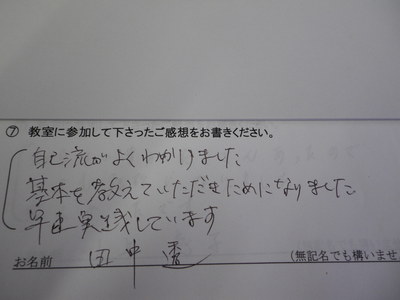 ⑦ 教室に参加して下さったご感想をお書きください。
自己流がよくわかりました
基本を教えていただきためになりました
早速実践しています
お名前 田中 (無記名でも構いませ